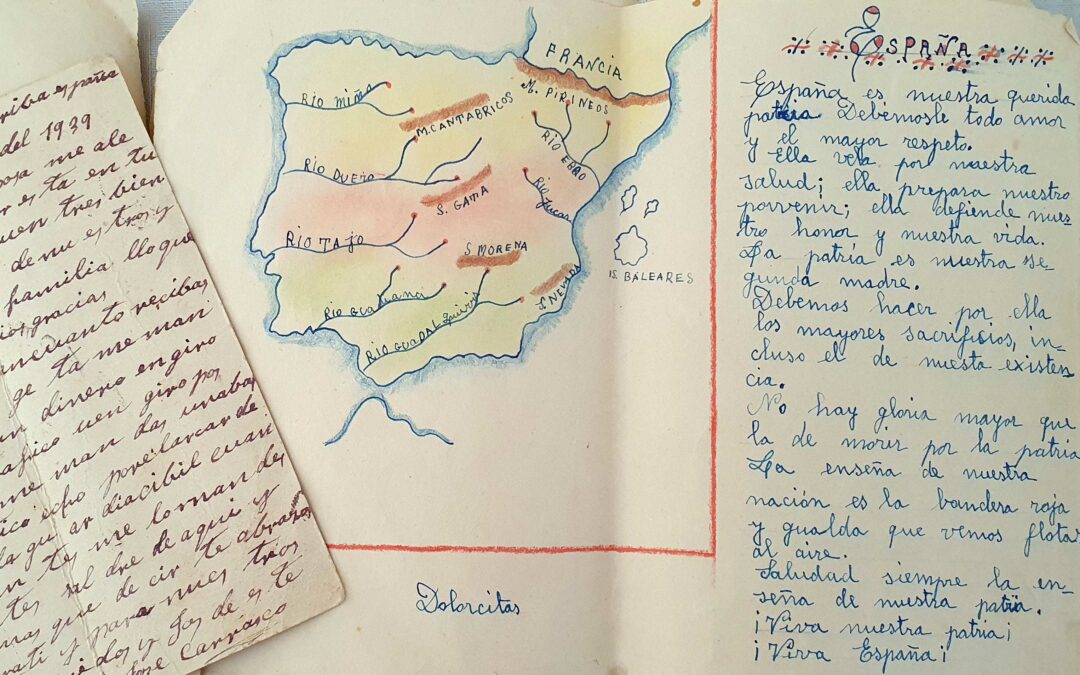 rriba españa
del 1939
posa me ale
r es ta en tu
uen tres bien
de nu es tros y
familia llo que
ios gracias
anecuanto recibas
ge ta me man
un dinero en giro
afico uen giro pos
me man das unabas
ico echo porelarcar de
la gu ar diacibil cuan
n tes me loman des
tes sal dre de aqui y
mas que de cir te abrazos
para ti y para nues tros
dos y Jos de es te
Jose Carrasco
FRANCIA
M. PIRINEOS
RIO MIÑO
M. CANTABRICOS
RIO EBRO
RIO DUERO
S. GATA
RIO Jucar
RIO TAJO
S. MORENA
IS. BALEARES
S. NEVADA
RIO GUADIANA
RIO GUADALquivir
Dolorcitas
ESPAÑA
España es nuestra querida
patria. Debemosle todo amor
y el mayor respeto.
Ella vela por nuestra
salud; ella prepara nuestro
porvenir; ella defiende nues
tro honor y nuestra vida.
La patria es nuestra se
gunda madre.
Debemos hacer por ella
los mayores sacrificios, in-
cluso el de nuesta existen
cia.
No hay gloria mayor que
la de morir por la patria
La enseña de nuestra
nación es la bandera roja
y gualda que vemos flotar
al aire.
Saludad siempre la en-
seña de nuestra patria.
¡Viva nuestra patria¡
¡Viva España¡